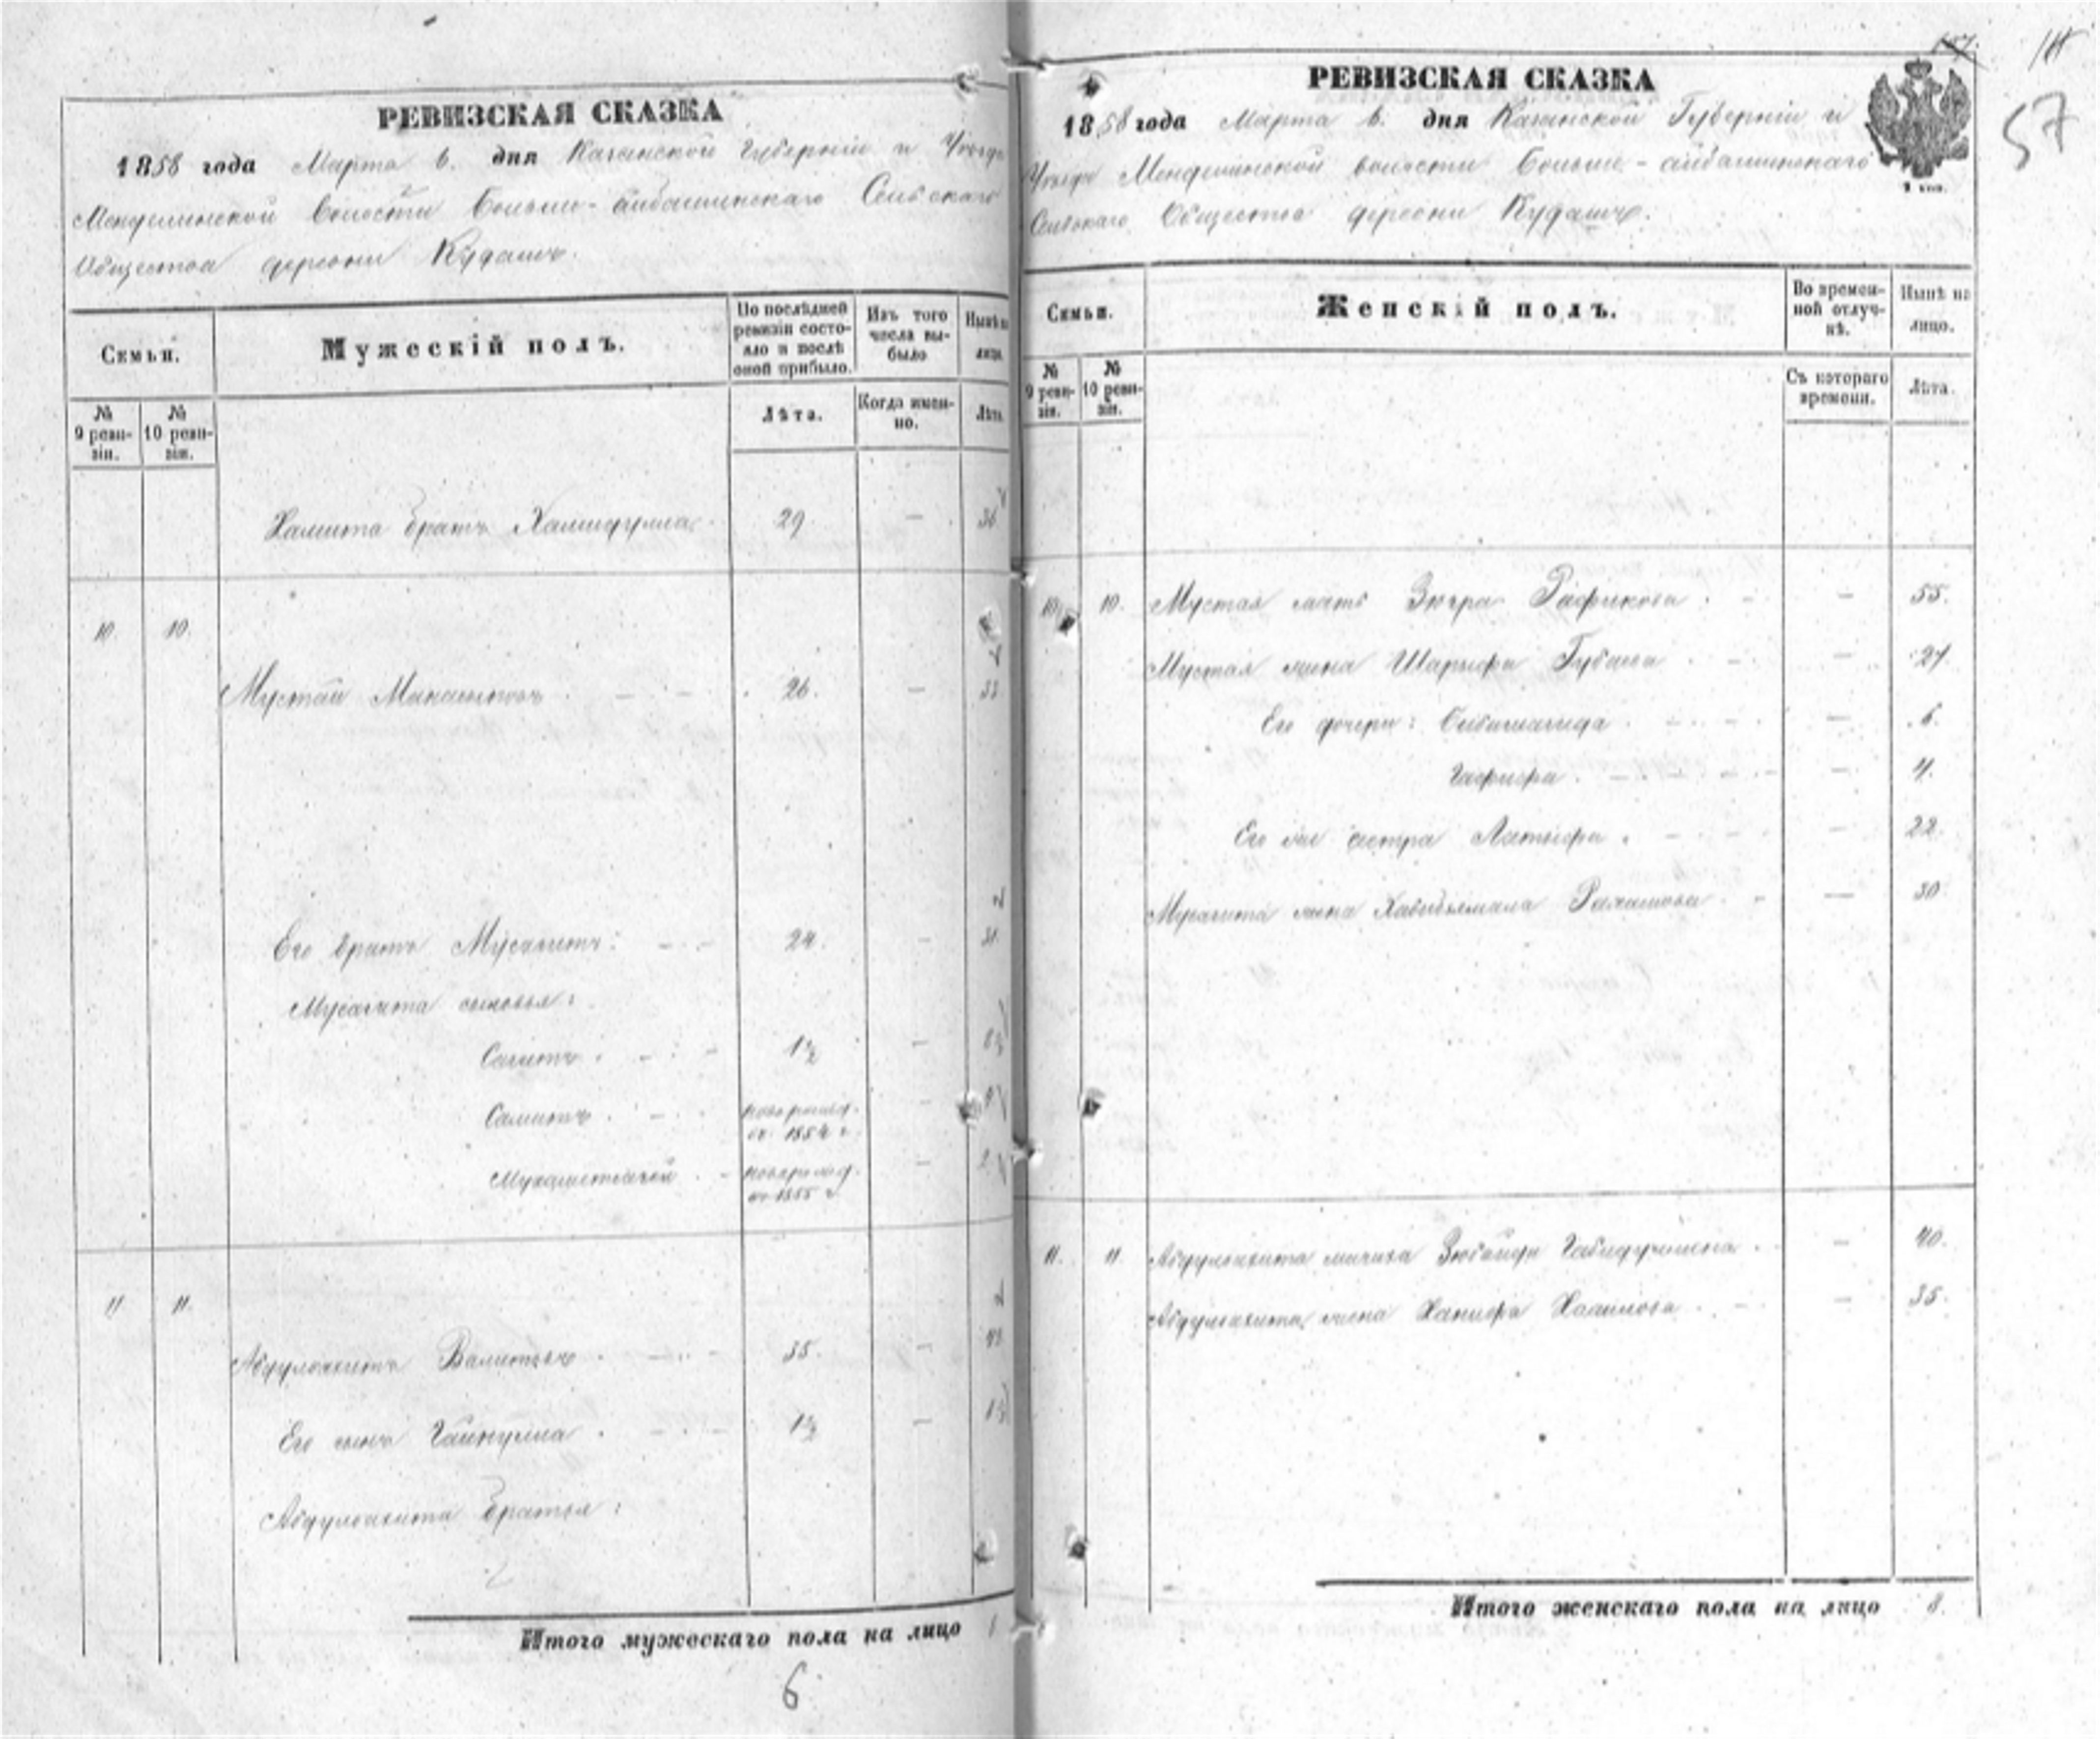 РЕВИЗСКАЯ СКАЗКА
1858 года Марта 6. дня Казанской Губерніи и Уѣзда
Менделинской волости Больше-айбашинскаго Сельскаго
Общества деревни Кудашъ.
Семьи.
Мужескій полъ.
По послѣдней ревизіи состояло и послѣ оной прибыло.
Изъ того числа выбыло
Нынѣ на лицо
№ 9 ревизіи.
№ 10 ревизіи.
Лѣта.
Когда именно.
Лѣта
Хамита братъ Хамидулла 29. — 36
10. 10.
Мустай 26. — 33
Его братъ Мусагитъ: 24. — 31.
Мусагита сыновья:
Сагитъ 1½ — 8½
Самитъ новорожд. въ 1854 г. —
новорожд. въ 1855 г. — 2
11 11.
Абдулвахитъ Валитовъ 35. —
Его сынъ Гайнулла 1½ —
Абдулвахита братья:
Итого мужескаго пола на лицо 8
6
РЕВИЗСКАЯ СКАЗКА
1858 года Марта 6. дня Казанской Губерніи и
Уѣзда Менделинской волости Больше-айбашинскаго
Сельскаго Общества деревни Кудашъ.
57
Семьи.
Женскій полъ.
Во временной отлучкѣ.
Нынѣ на лицо.
№ 9 ревизіи.
№ 10 ревизіи.
Съ котораго времени.
Лѣта.
10. 10. Мустая мать Зюгра Рафикова — 55.
Мустая жена Шарыфа Губаева — 27
Его дочери: Бибишагида — 6.
Гафифа — 4.
Его же сестра Латыфа — 22.
Мусагита жена — 30
11. 11. Абдулвахита мачиха Зюбайда — 40.
Абдулвахита жена Ханифа — 35.
Итого женскаго пола на лицо 8.